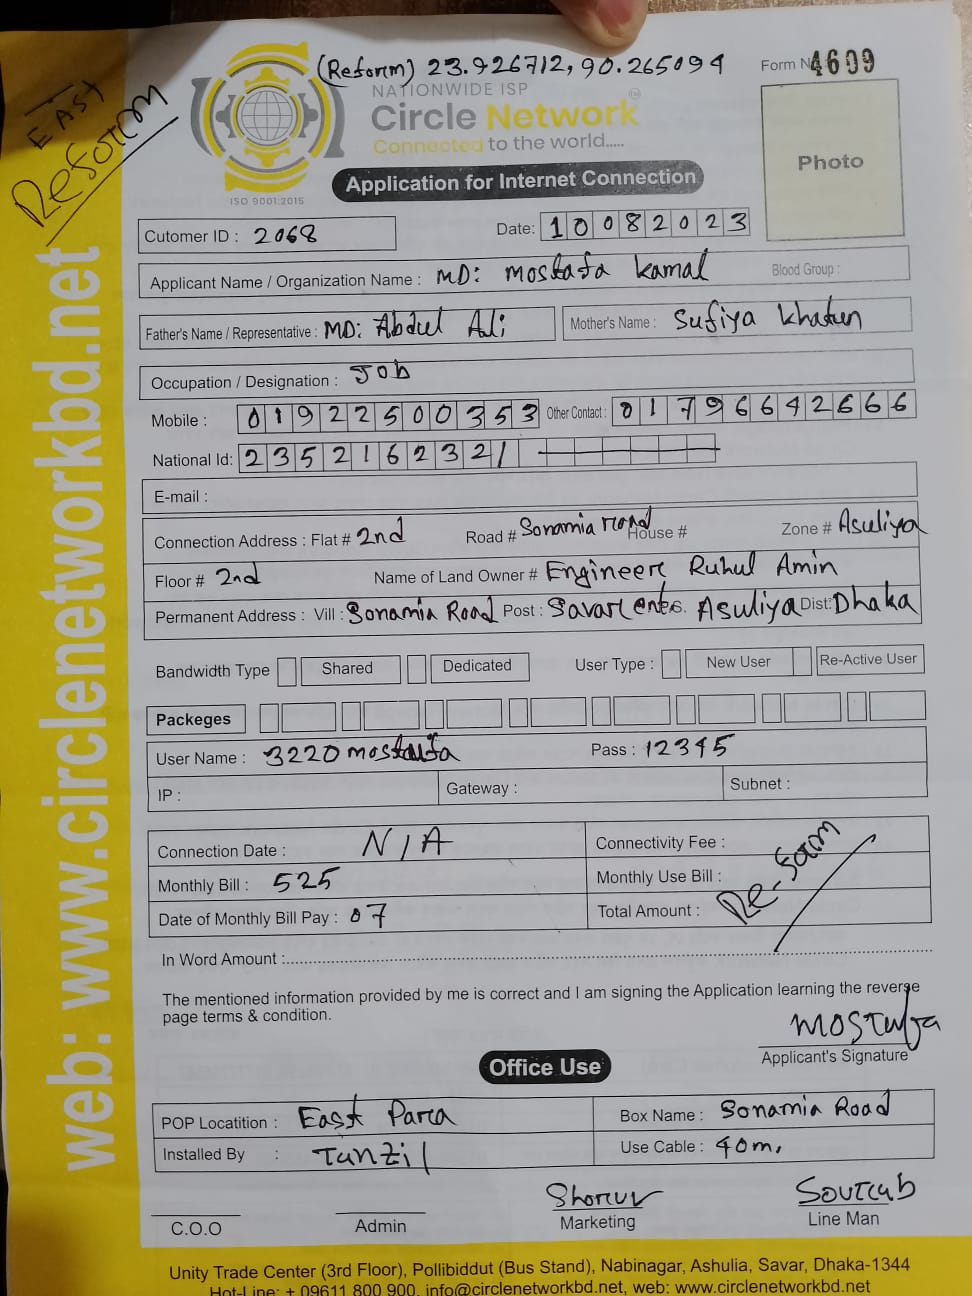 EAST
Reform
(Reform) 23.926712, 90.265094
Form No 4609
NATIONWIDE ISP
Circle Network
Connected to the world.....
ISO 9001:2015
Application for Internet Connection
Photo
Cutomer ID : 2068
Date: 10082023
Applicant Name / Organization Name : MD: mostafa kamal
Blood Group :
Father's Name / Representative : MD: Abdul Ali
Mother's Name : Sufiya khatun
Occupation / Designation : Job
Mobile : 01922500353 Other Contact : 01796642666
National Id: 2352162321
E-mail :
Connection Address : Flat # 2nd Road # Sonamia road House # Zone # Asuliya
Floor # 2nd Name of Land Owner # Engineer Ruhul Amin
Permanent Address : Vill : Sonamia Road Post : Savar P.S. Asuliya Dist: Dhaka
Bandwidth Type Shared Dedicated User Type : New User Re-Active User
Packeges
User Name : 3220mostafa Pass : 12345
IP : Gateway : Subnet :
Connection Date : N/A
Connectivity Fee :
Monthly Bill : 525
Monthly Use Bill :
Date of Monthly Bill Pay : 07
Total Amount :
In Word Amount :
The mentioned information provided by me is correct and I am signing the Application learning the reverse
page terms & condition.
mostafa
Applicant's Signature
Office Use
POP Locatition : East Para
Box Name : Sonamia Road
Installed By : Tanzil
Use Cable : 40m.
C.O.O
Admin
Marketing
Line Man
Unity Trade Center (3rd Floor), Pollibiddut (Bus Stand), Nabinagar, Ashulia, Savar, Dhaka-1344
Hot-Line: + 09611 800 900, info@circlenetworkbd.net, web: www.circlenetworkbd.net
web: www.circlenetworkbd.net